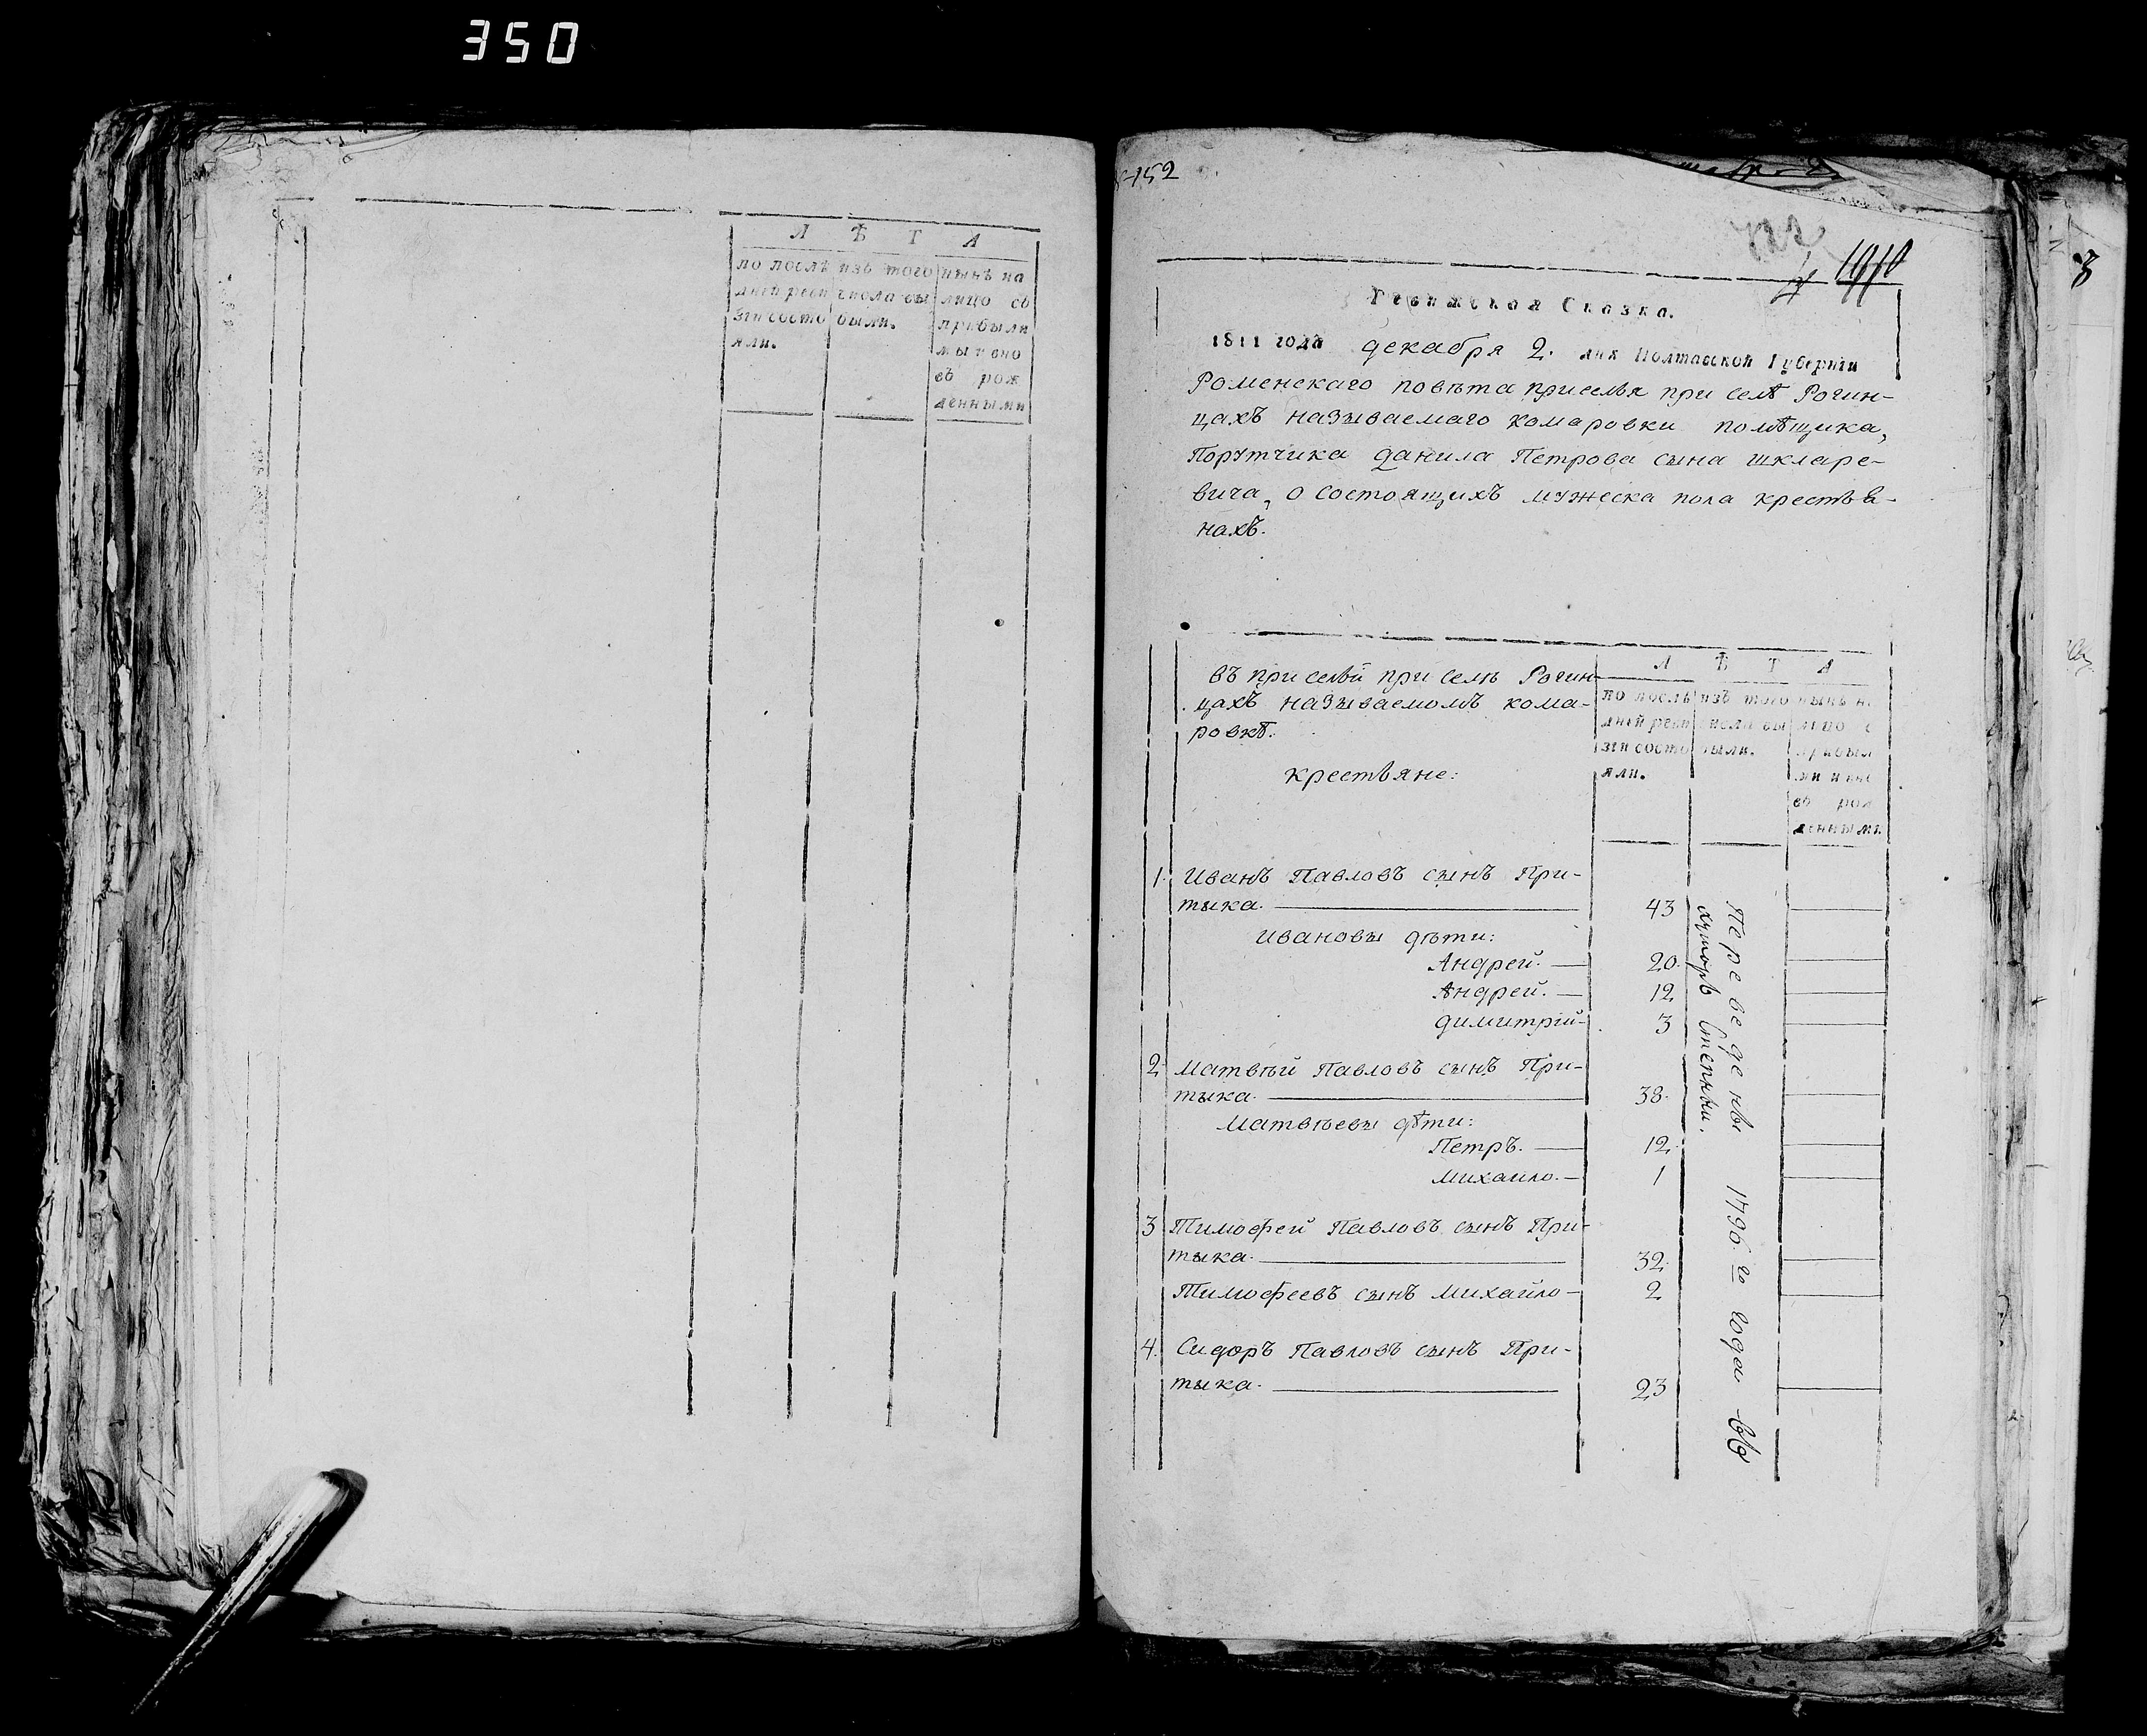 350
Л Ѣ Т А
по послѣ
дней реви
зіи состо
яли.
изъ того
числа вы
были.
нынѣ на
лицо съ
прибыли
ми и вно
въ рож
денными
152
Ревижская Сказка.
1811 года декабря 2. дня Полтавской Губерніи
Роменскаго повѣта приселья при селѣ Рогин-
цахъ называемаго Комаровки помѣщика,
Порутчика Данила Петрова сына Шкларе-
вича, о состоящихъ мужеска пола крестья-
нахъ.
Въ присельи при селѣ Рогин-
цахъ называемомъ Кома-
ровкѣ.
Крестьяне:
Л Ѣ Т А
по послѣ
дней реви
зіи состо
яли.
изъ того
числа вы
были.
нынѣ н
лицо с
прибыл
ми и вно
въ рож
денными
1. Иванъ Павловъ сынъ При-
тыка. 43
Ивановы дѣти:
Андрей. 20.
Андрей. 12
Димитрій 3
2 Матвѣй Павловъ сынъ При-
тыка. 38.
Матвѣевы дѣти:
Петръ. 12.
Михайло. 1
3 Тимофей Павловъ сынъ При-
тыка. 32.
Тимофеевъ сынъ Михайло 2
4. Сидоръ Павловъ сынъ При-
тыка. 23
Переведены 1796. го года въ
хуторъ Степный.